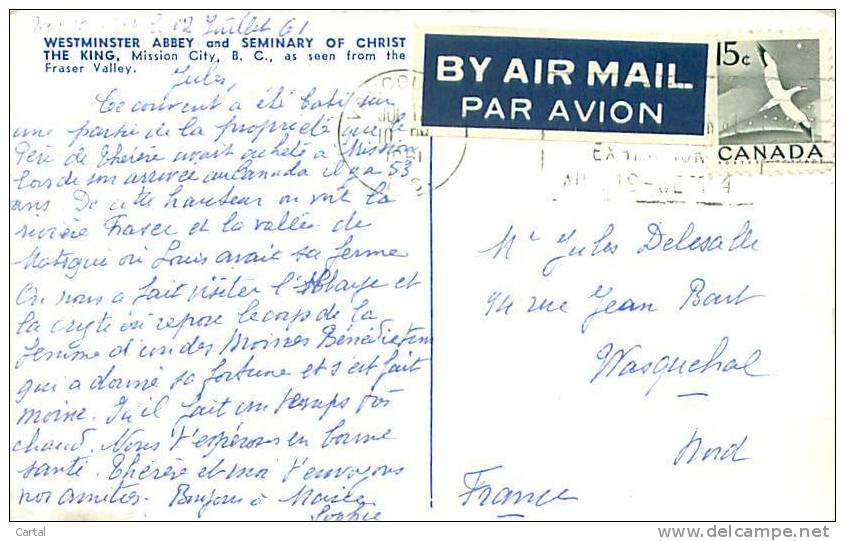 12 Juillet 61
WESTMINSTER ABBEY and SEMINARY OF CHRIST
THE KING, Mission City, B. C., as seen from the
Fraser Valley.
Jules,
Ce couvent a été bati sur
une partie de la propriété que le
Père de Thérère avait acheté à Mission
lors de son arrivée au Canada il y a 53
ans. De cette hauteur on voit la
rivière Fraser et la vallée de
Matsqui où Louis avait sa ferme
On nous a fait visiter l'Abbaye et
la crypte où repose le corps de la
femme d'un des Moines Bénédictins
qui a donné sa fortune et s'est fait
moine. Ici il fait un temps très
chaud. Nous t'espérons en bonne
santé. Thérèse et moi t'envoyons
nos amitiés. Bonjour à
Sophie
BY AIR MAIL
PAR AVION
15¢
CANADA
Mr Jules Delesalle
94 rue Jean Bart
Wasquehal
Nord
France
Cartal
www.delcampe.net